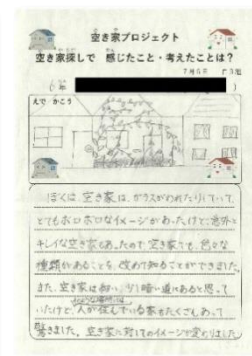 空き家プロジェクト
空き家探しで 感じたこと・考えたことは？
7月5日
6年
えで かこう
ぼくは、空き家は、ガラスがわれたりしていて、
とてもボロボロなイメージがあったけど、意外と
キレイな空き家もあったので、空き家でも、色々な
種類があることを、改めて知ることができました。
また、空き家は細い、少し暗い道にあると思って
いたけど、人が住んでいる家もたくさんあって
驚きました。空き家に対してのイメージが変わりました。